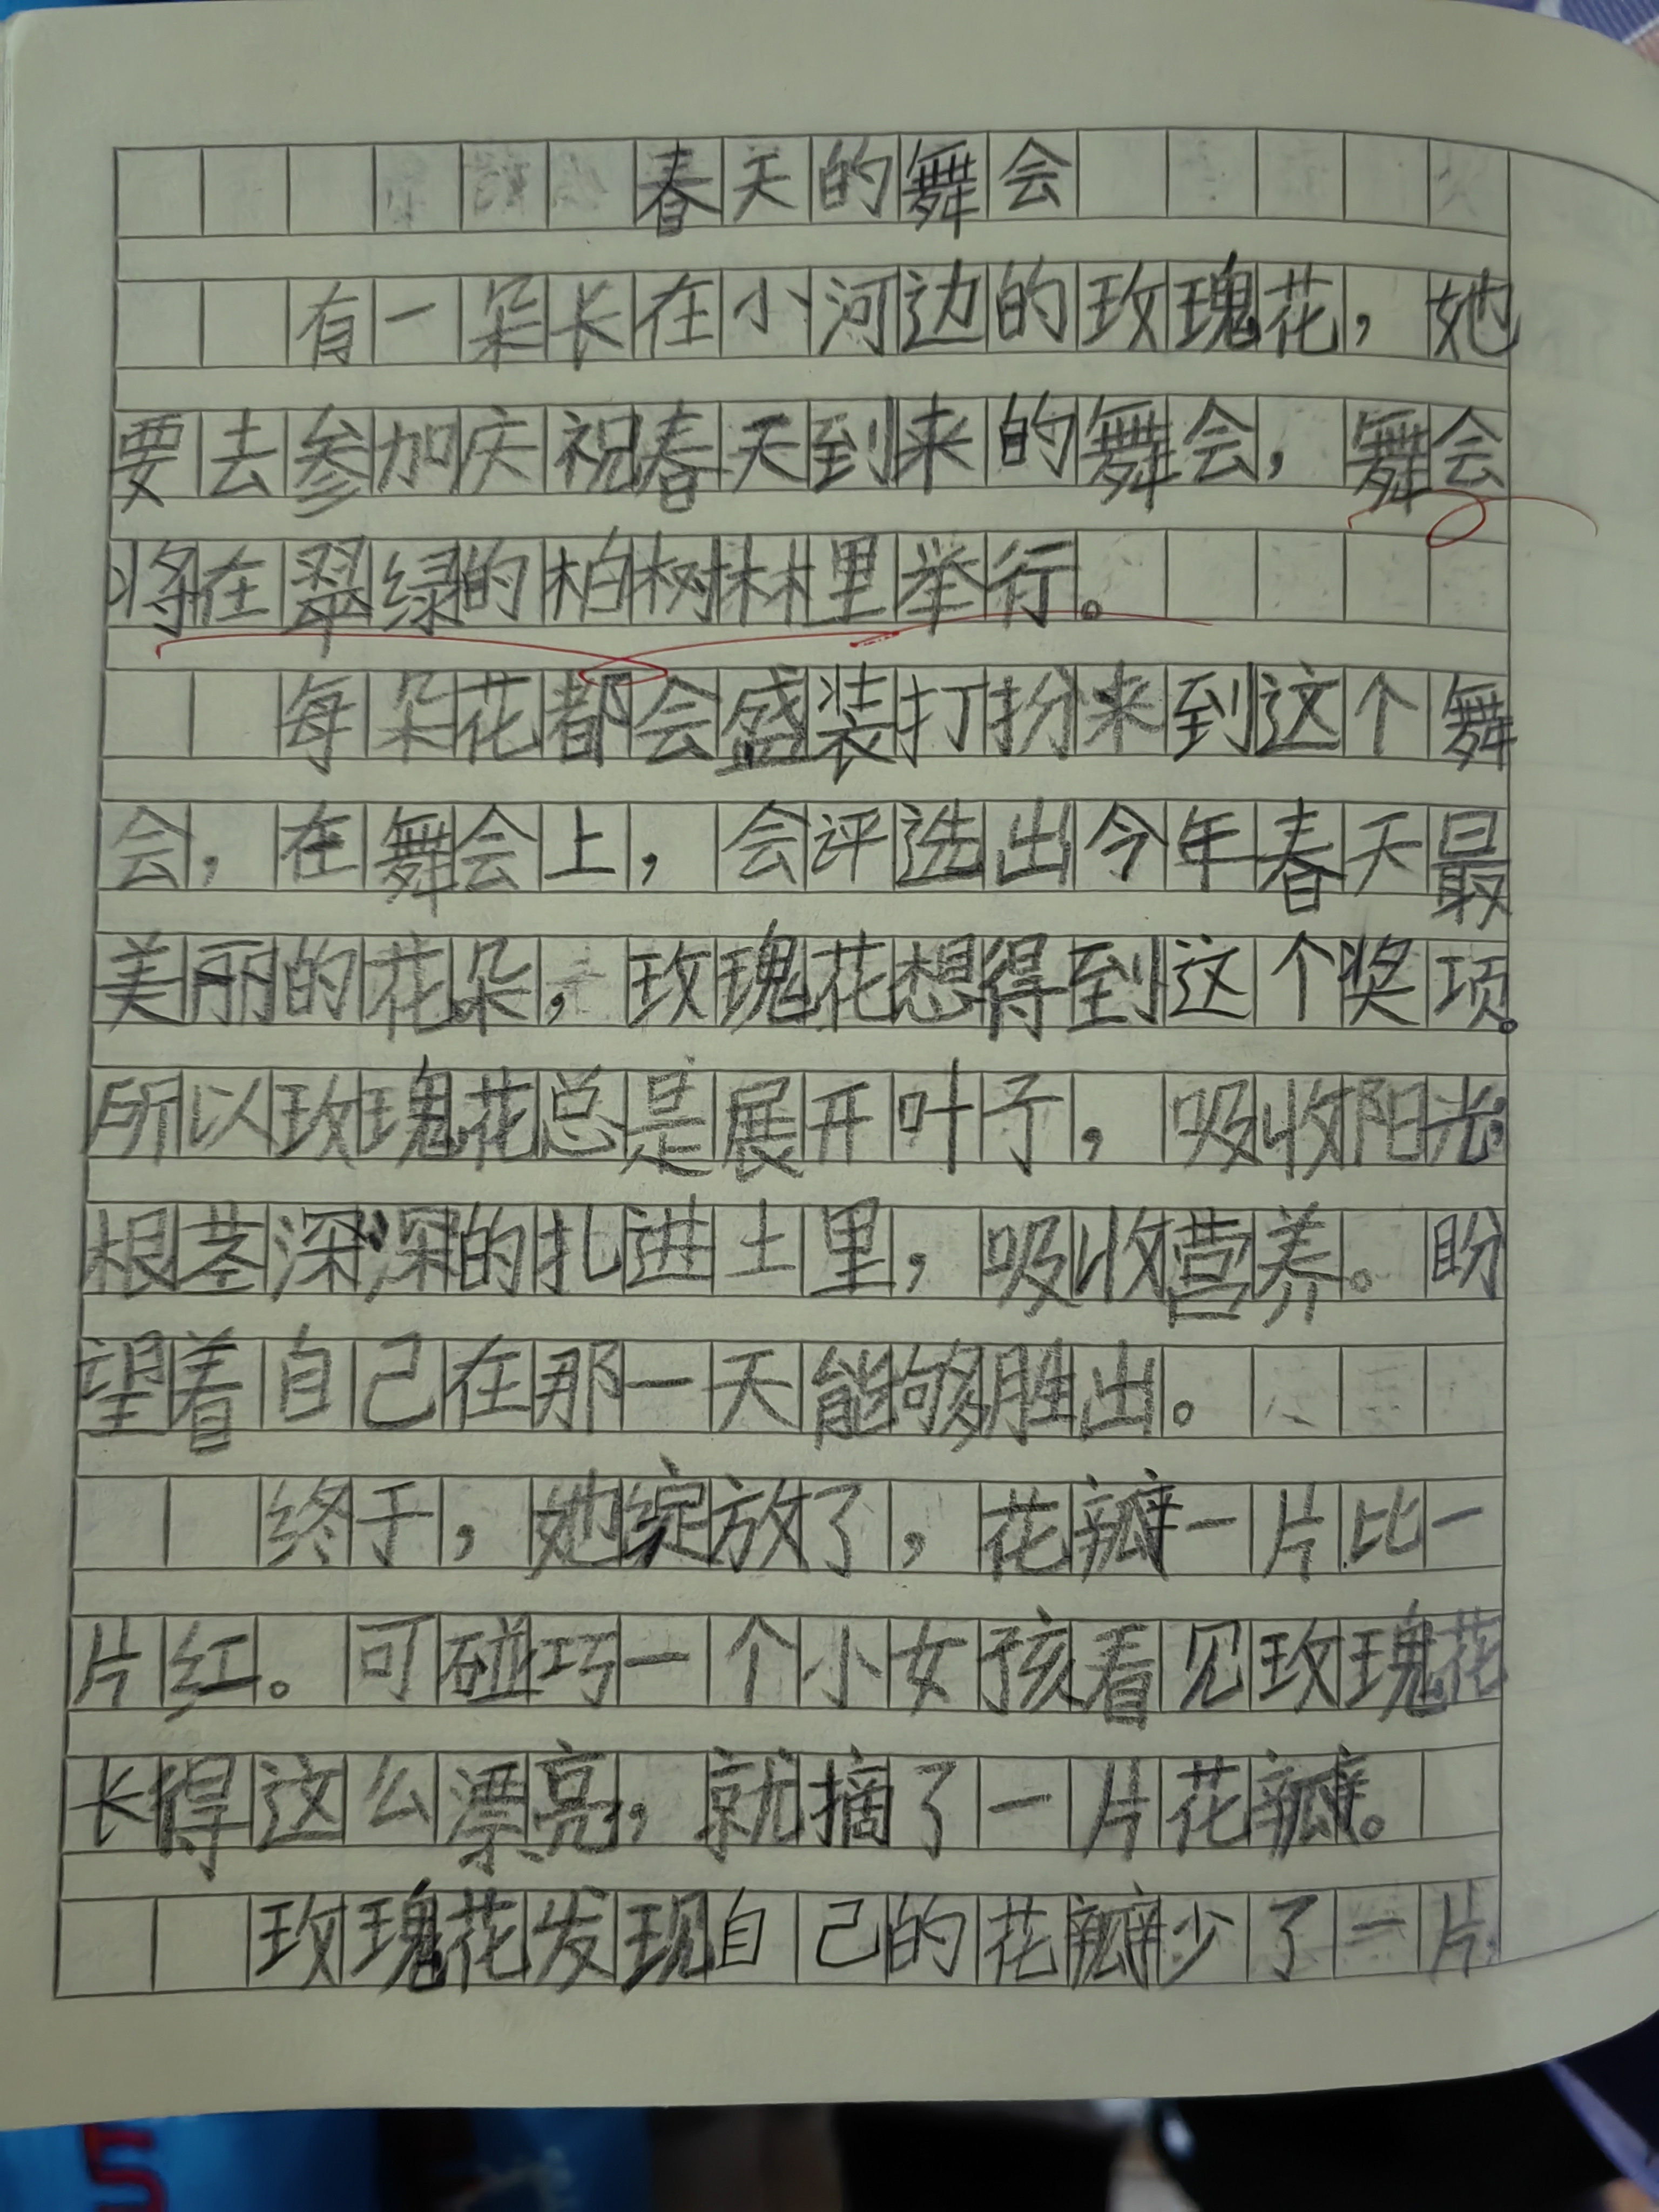 春天的舞会
有一朵长在小河边的玫瑰花，她
要去参加庆祝春天到来的舞会，舞会
将在翠绿的柏树林里举行。
每朵花都会盛装打扮来到这个舞
会，在舞会上，会评选出今年春天最
美丽的花朵，玫瑰花想得到这个奖项。
所以玫瑰花总是展开叶子，吸收阳光，
根茎深深的扎进土里，吸收营养。盼
望着自己在那一天能够胜出。
终于，她绽放了，花瓣一片比一
片红。可碰巧一个小女孩看见玫瑰花
长得这么漂亮，就摘了一片花瓣。
玫瑰花发现自己的花瓣少了一片，